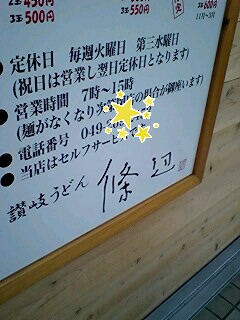 2玉 450円
3玉 550円
3玉 500円
3玉 600円
11月~3月
● 定休日 毎週火曜日 第三水曜日
(祝日は営業し翌日定休日となります)
● 営業時間 7時~15時
(麺がなくなり次第の場合が御座います)
● 電話番号 049-2
● 当店はセルフサービスで
讃岐うどん 條辺